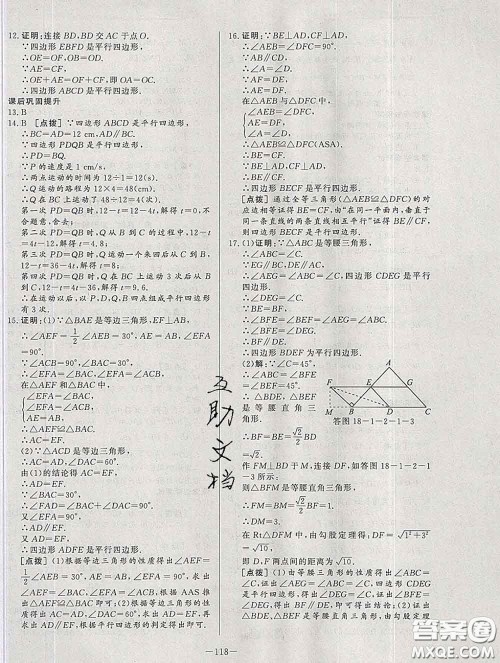 12.证明:连接BD,BD交AC于点O.
∵四边形EBFD是平行四边形.
∴OE=OF,OB=OD.
∵AE=CF.
∴OE+AE=OF+CF,即OA=OC.
∴四边形ABCD是平行四边形.
课后巩固提升
13.B
14.B [点拨]∵四边形ABCD是平行四边形,
∴BC=AD=12 cm,AD∥BC.
∵四边形PDQB是平行四边形,
∴PD=BQ.
∵P的速度是1 cm/s,
∴两点运动的时间为12÷1=12(s).
∴Q运动的路程为12×4=48(cm).
∴在BC上运动了48÷12=4(次).
第一次PD=QB时,12-t=12-4t,解得t=0,不
合题意,舍去;
第二次PD=QB时,Q从B到C的过程中,12-t
=4t-12,解得t=4.8;
第三次PD=QB时,Q运动一个来回后从C到
B,12-t=36-4t,解得t=8;
第四次PD=QB时,Q在BC上运动3次后从B
到C,12-t=4t-36,解得t=9.6.
∴在运动以后,以P、D、Q、B四点组成平行四边形
有3次.
15.证明:(1)∵△BAE是等边三角形,EF⊥AB,
∴∠AEF=1/2∠AEB=30°,AE=AB,∠EFA=
90°.
∵∠ACB=90°,∠BAC=30°,
∴∠EFA=∠ACB,∠AEF=∠BAC.
在△AEF和△BAC中,
∠AEF=∠BAC,
∠EFA=∠ACB,
AE=AB,
∴△AEF≌△BAC(AAS).
∴AC=EF.
(2)∵△ACD是等边三角形,
∴AC=AD,∠DAC=60°.
由(1)的结论得AC=EF,
∴AD=EF.
∵∠BAC=30°,
∴∠FAD=∠BAC+∠DAC=90°.
∵∠EFA=90°,
∴EF∥AD.
又∵AD=EF.
∴四边形ADFE是平行四边形.
[点拨](1)根据等边三角形的性质得出∠AEF=
1/2∠AEB=30°,AE=AB,∠EFA=90°,求出
∠AEF=∠BAC,∠EFA=∠ACB,根据AAS推
出△AEF≌△BAC即可;(2)根据全等得出AC=
EF=AD,根据平行四边形的判定得出即可.
16.证明:∵BE⊥AD,CF⊥AD,
∴∠AEB=∠DFC=90°.
∵AB∥CD,
∴∠A=∠D.
在△AEB与△DFC中,
∠AEB=∠DFC,
AE=DF,
∠A=∠D,
∴△AEB≌△DFC(ASA).
∴BE=CF.
∵BE⊥AD,CF⊥AD,
∴BE∥CF.
∴四边形BECF是平行四边形.
[点拨]通过全等三角形(△AEB≌△DFC)的对
应边相等证得BE=CF,由“在同一平面内,垂直于
同一条直线的两条直线相互平行”证得BE∥CF,
则四边形BECF是平行四边形.
17.(1)证明:∵△ABC是等腰三角形,
∴∠ABC=∠C.
∵EG∥BC,DE∥AC,
∴∠AEG=∠ABC=∠C,四边形CDEG是平行四
边形.
∴∠DEG=∠C.
∵BE=BF,
∴∠BFE=∠BEF=∠AEG=∠ABC.
∴∠BFE=∠DEG.
∴BF∥DE.
∴四边形BDEF为平行四边形.
(2)解:∵∠C=45°,
∴∠ABC=∠BFE
=∠BEF=45°.
∴△BDE、△BEF
是等腰直角三角
形.
∴BF=BE=√2/2BD
=√2.
A
F
E
G
M
B
D
C
答图18-1-2-1-3
作FM⊥BD于M,连接DF,如答图18-1-2-1
-3所示:
则△BFM是等腰直角三角形,
∴FM=BM=√2/2BF=1.
∴DM=3.
在Rt△DFM中,由勾股定理得,DF=√1²+3²
=√10.
即D,F两点间的距离为√10.
[点拨](1)由等腰三角形的性质得出∠ABC=
∠C,证出∠AEG=∠ABC=∠C,四边形CDEG
是平行四边形,得出∠DEG=∠C,证出∠BFE=
∠DEG,得出BF∥DE,即可得出结论;(2)证出
△BDE、△BEF是等腰直角三角形,由勾股定理
互助文档
—118—
答案圈
MXQE.COM